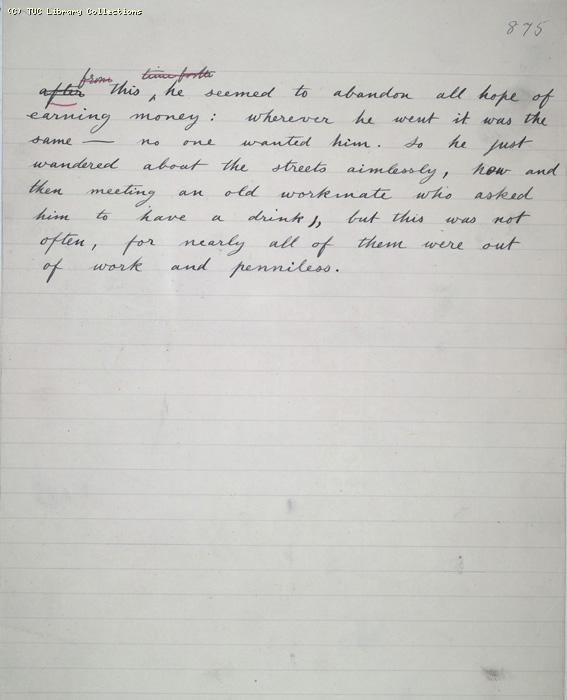 (C) TUC Library Collections
875
from time forth
after this, he seemed to abandon all hope of
earning money: wherever he went it was the
same — no one wanted him. So he just
wandered about the streets aimlessly, now and
then meeting an old workmate who asked
him to have a drink, but this was not
often, for nearly all of them were out
of work and penniless.